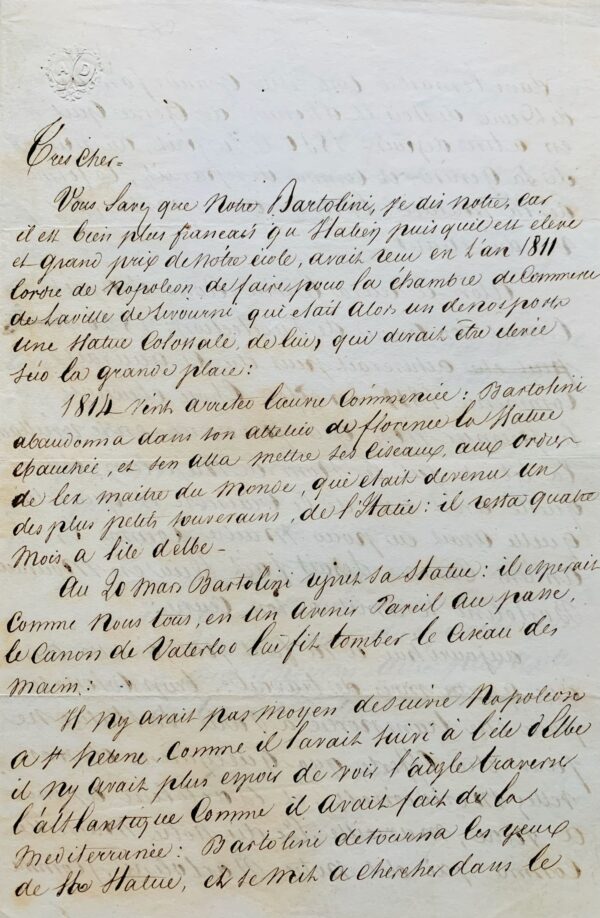 AD
Tres cher =
Vous Savez que Notre Bartolini, je dis notre, car
il est bien plus francais qu Italien puisquil est eleve
et grand prix de Notre école, avait recu en l'an 1811
l'ordre de Napoleon de faire pour la chambre de Commerce
de la ville de Livourne qui etait alors un de nos ports
une Statue Colossale de lui, qui devait être elevée
Sur la grande place :
1814 Vint arreter l'œuvre Commencée : Bartolini
abandonna dans son attelier de florence la Statue
Ebauchée, et sen alla mettre ses Ciseaux aux ordres
de l ex maitre du Monde, qui etait devenu un
des plus petits souverains, de l'Italie : il resta quatre
Mois a l'ile d'elbe -
Au 20 Mars Bartolini reprit sa Statue : il esperait
Comme Nous tous, en un avenir Pareil au passe,
le Canon de Vaterloo lui fit tomber le Ciseau des
Mains :
Il ny avait pas moyen de suivre Napoleon
a Ste helene, Comme il l'avait suivi à l'ile d'elbe
il ny avait plus espoir de voir l'aigle traverser
l'atlantique Comme il avait fait de la
Mediterranée : Bartolini detourna les yeux
de sa Statue, et se mit a chercher dans le